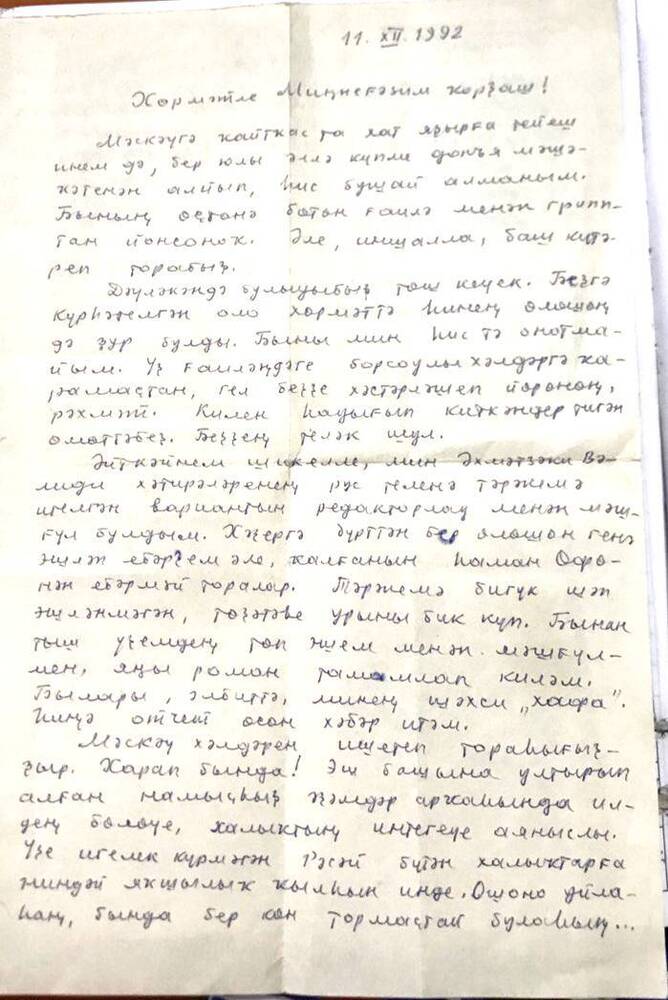 11. XII. 1992
Хөрмәтле Миңнеғәзим ҡорҙаш!
Мәскәүгә ҡайтҡас та хат яҙырға тейеш
инем дә, бер юлы әллә күпме донъя мәшә-
ҡәтенән алйып, һис бушай алманым.
Бының өҫтөнә бөтөн ғаилә менән грипп-
тан йонсоноҡ. Әле, иншалла, баш күтә-
реп торабыҙ.
Дәүләкәндә булыуыбыҙ төш кеүек. Беҙгә
күрһәтелгән оло хөрмәттә һинең өлөшөң
дә ҙур булды. Быны мин һис тә онотма-
йым. Үҙ ғаиләңдәге борсоулы хәлдәргә ҡа-
рамаҫтан, гел беҙҙе хәстәрләшеп йөрөнөң,
рәхмәт. Килен һауығып киткәндер тигән
өмөттәбеҙ. Беҙҙең теләк шул.
Әйткәйнем шикелле, мин Әхмәтзәки Вә-
лиди хәтирәләренең рус теленә тәржемә
ителгән вариантын редакторлау менән мәш-
ғүл булдым. Хәҙергә дүрттән бер өлөшөн генә
эшләп ебәрҙем әле, ҡалғанын һаман Өфө-
нән ебәрмәй торалар. Тәржемә бигүк шәп
эшләнмәгән, төҙәтәһе урыны бик күп. Бынан
тыш үҙемдең төп эшем менән мәшғүл-
мен, яңы роман тамамлап киләм.
Былары, әлбиттә, минең шәхси „хафа".
Һиңә отчет өсөн хәбәр итәм.
Мәскәү хәлдәрен ишетеп тораһығыҙ-
ҙыр. Харап бында! Эш башына ултырып
алған намыҫһыҙ әҙәмдәр арҡаһында ил-
дең бөлөүе, халыҡтың интегеүе аяныслы.
Үҙе игелек күрмәгән Рәсәй бүтән халыҡтарға
ниндәй яҡшылыҡ ҡылһын инде. Ошоно уйла-
һаң, бында бер көн тормаҫтай булаһың...